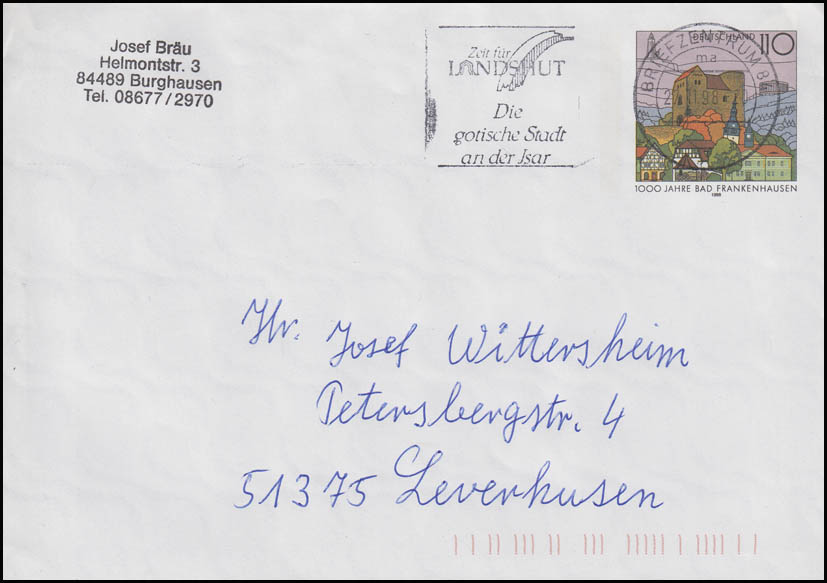 Josef Bräu
Helmontstr. 3
84489 Burghausen
Tel. 08677/2970
Zeit für
LANDSHUT
Die
gotische Stadt
an der Isar
DEUTSCHLAND 110
BRIEFZENTRUM 8
ma
1000 JAHRE BAD FRANKENHAUSEN
1998
Hr. Josef Wittersheim
Petersbergstr. 4
51375 Leverkusen